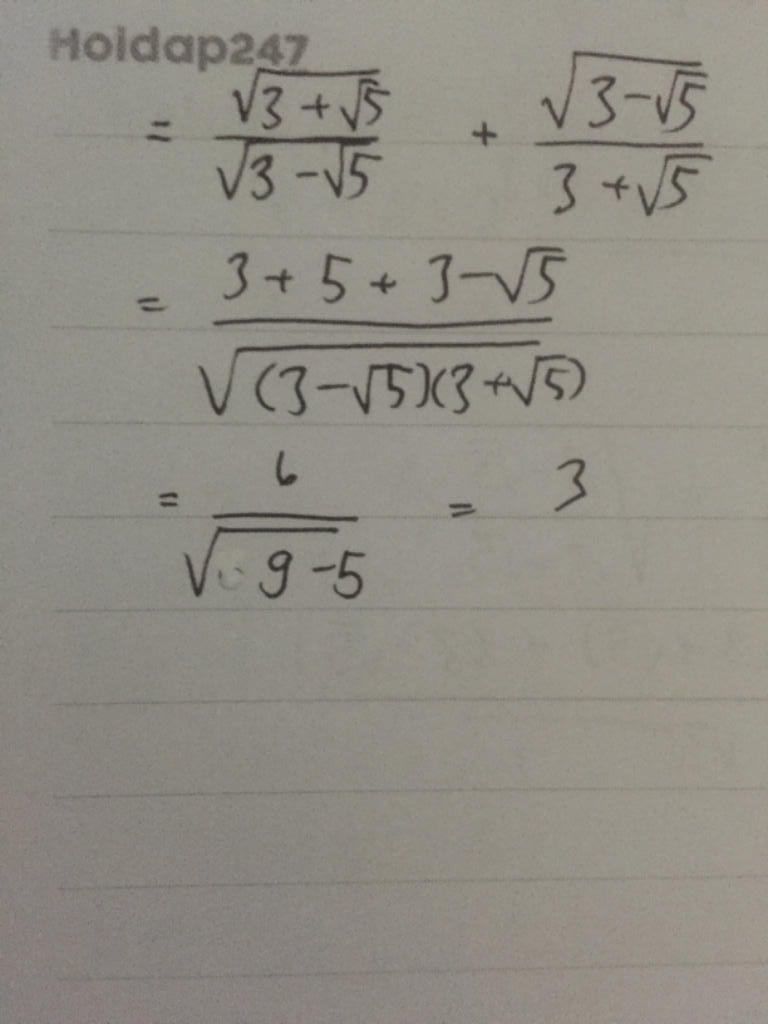 Hoidap247
= √(3 + √5) / √(3 - √5) + √(3 - √5) / (3 + √5)
= (3 + 5 + 3 - √5) / √((3 - √5)(3 + √5))
= 6 / √(9 - 5) = 3